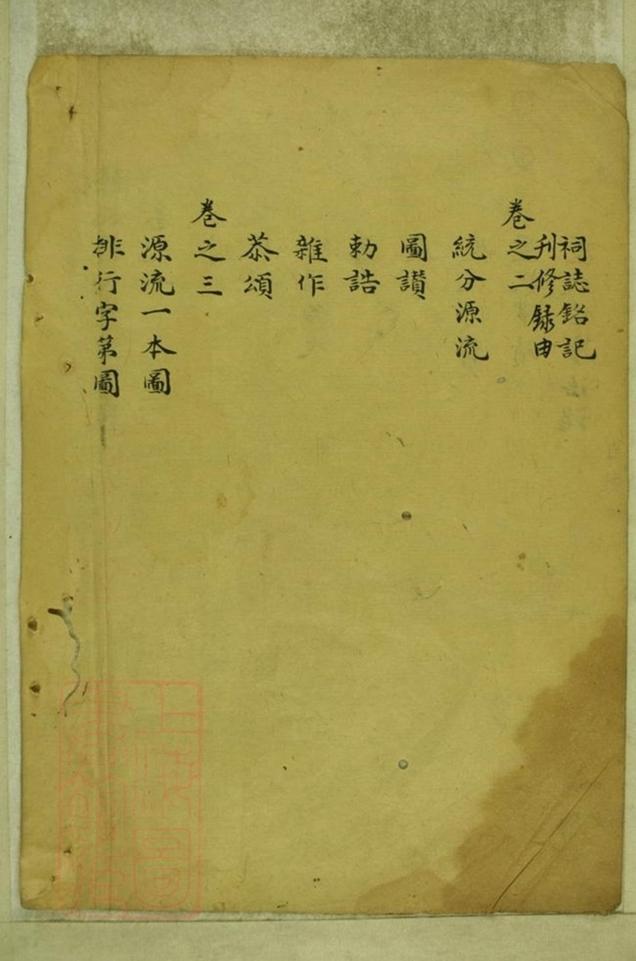 祠誌銘記
刋修録由
卷之二
統分源流
圖讃
勅誥
雜作
恭頌
卷之三
源流一本圖
排行字第圖